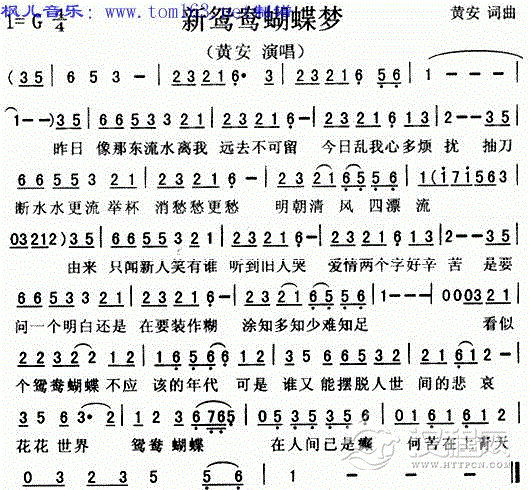 枫儿音乐: www.tom163.net制谱
1=G 4/4 新鸳鸯蝴蝶梦 黄安 词曲
(黄安 演唱)
(35 | 665335 | 2——35 | 23216·3 | 2——35 | 232165 | 1———
1——)35 | 665321 | 2——35 | 232165 | 3——35 | 665335 | 2——35
昨日 像那东流水离我 远去不可留 今日乱我心多烦 扰 抽刀
665321 | 232123 | 2321656 | 1(1715563
断水水更流 举杯 消愁愁更愁 明朝清 风 四漂 流
03212)35 | 665321 | 2——35 | 232165 | 3——35
由来 只闻新人笑有谁 听到旧人哭 爱情两个字好辛 苦 是要
665335 | 2——321 | 2321656 | 1——— | 000321
问一个明白还是 在要装作糊 涂知多知少难知足 看似
223212 | 165612 | 335321 | 221612
个鸳鸯蝴蝶 不应 该的年代 可是 谁又能摆脱人世 间的悲 哀
3563·2 | 1236765 | 053535 | 061615
花花世界 鸳鸯 蝴蝶 在人间已是癫 何苦在上青天
0323 | 5565 | 1——— | ————
汉程网
WWW.HTTPCN.COM